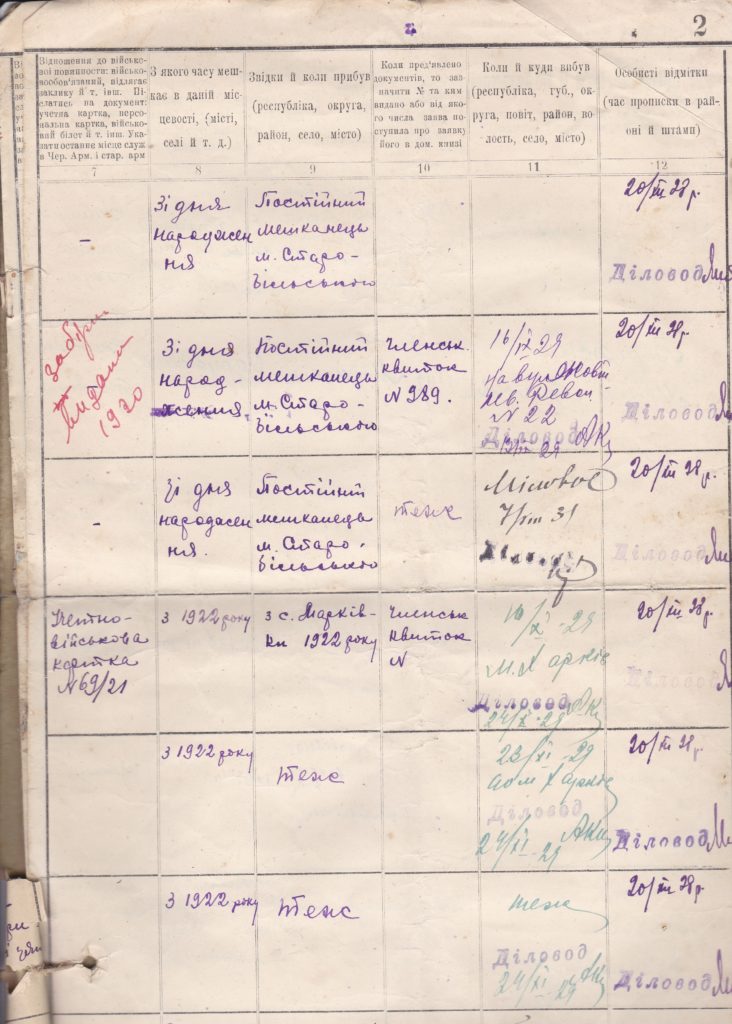 2
Відношення до військо-
вої повинности: війсь-
ковообов'язаний, підлягає
заклику й т. інш. Пі-
слатись на документ:
учетна картка, персо-
нальна картка, військо-
вий білет й т. інш. Ука-
зати останнє місце служ
в Чер. Арм. і стар. арм
7
З якого часу меш-
кає в даній міс-
цевості, (місті,
селі й т. д.)
8
Звідки й коли прибув
(республіка, округа,
район, село, місто)
9
Коли пред'явлено
документів, то заз-
начити № та ким
видано або від яко-
го числа заява по-
ступила про заявку
його в дом. книзі
10
Коли й куди вибув
(республіка, губ., ок-
руга, повіт, район, во-
лость, село, місто)
11
Особисті відмітки
(час прописки в рай-
оні й штамп)
12
–
Зі дня
народжен
ня
Постійний
мешканець
м. Старо-
більського
20/III 28 р.
Діловод
видани
1930
Зі дня
народ-
ження
Постійний
мешканець
м. Старо-
більського
Членськ.
квиток
N 989.
16/IX 29
на вул.
N 22
Діловод
29
20/III 28 р.
Діловод
–
Зі дня
народжен
ня.
Постійний
мешканець
м. Старо-
більського
теж
Мілове
7/III 31
Діловод
20/III 28 р.
Діловод
військова
картка
N 69/21
з 1922 року
з с. Марків-
ки 1922 року
Членськ
квиток
N
29
м. Харків
Діловод
29
20/III 28 р.
Діловод
з 1922 року
теж
23/XI - 29
Харків
Діловод
24/XI - 29
20/III 28 р.
Діловод
з 1922 року
теж
теж
Діловод
24/XI - 29
20/III 28 р.
Діловод